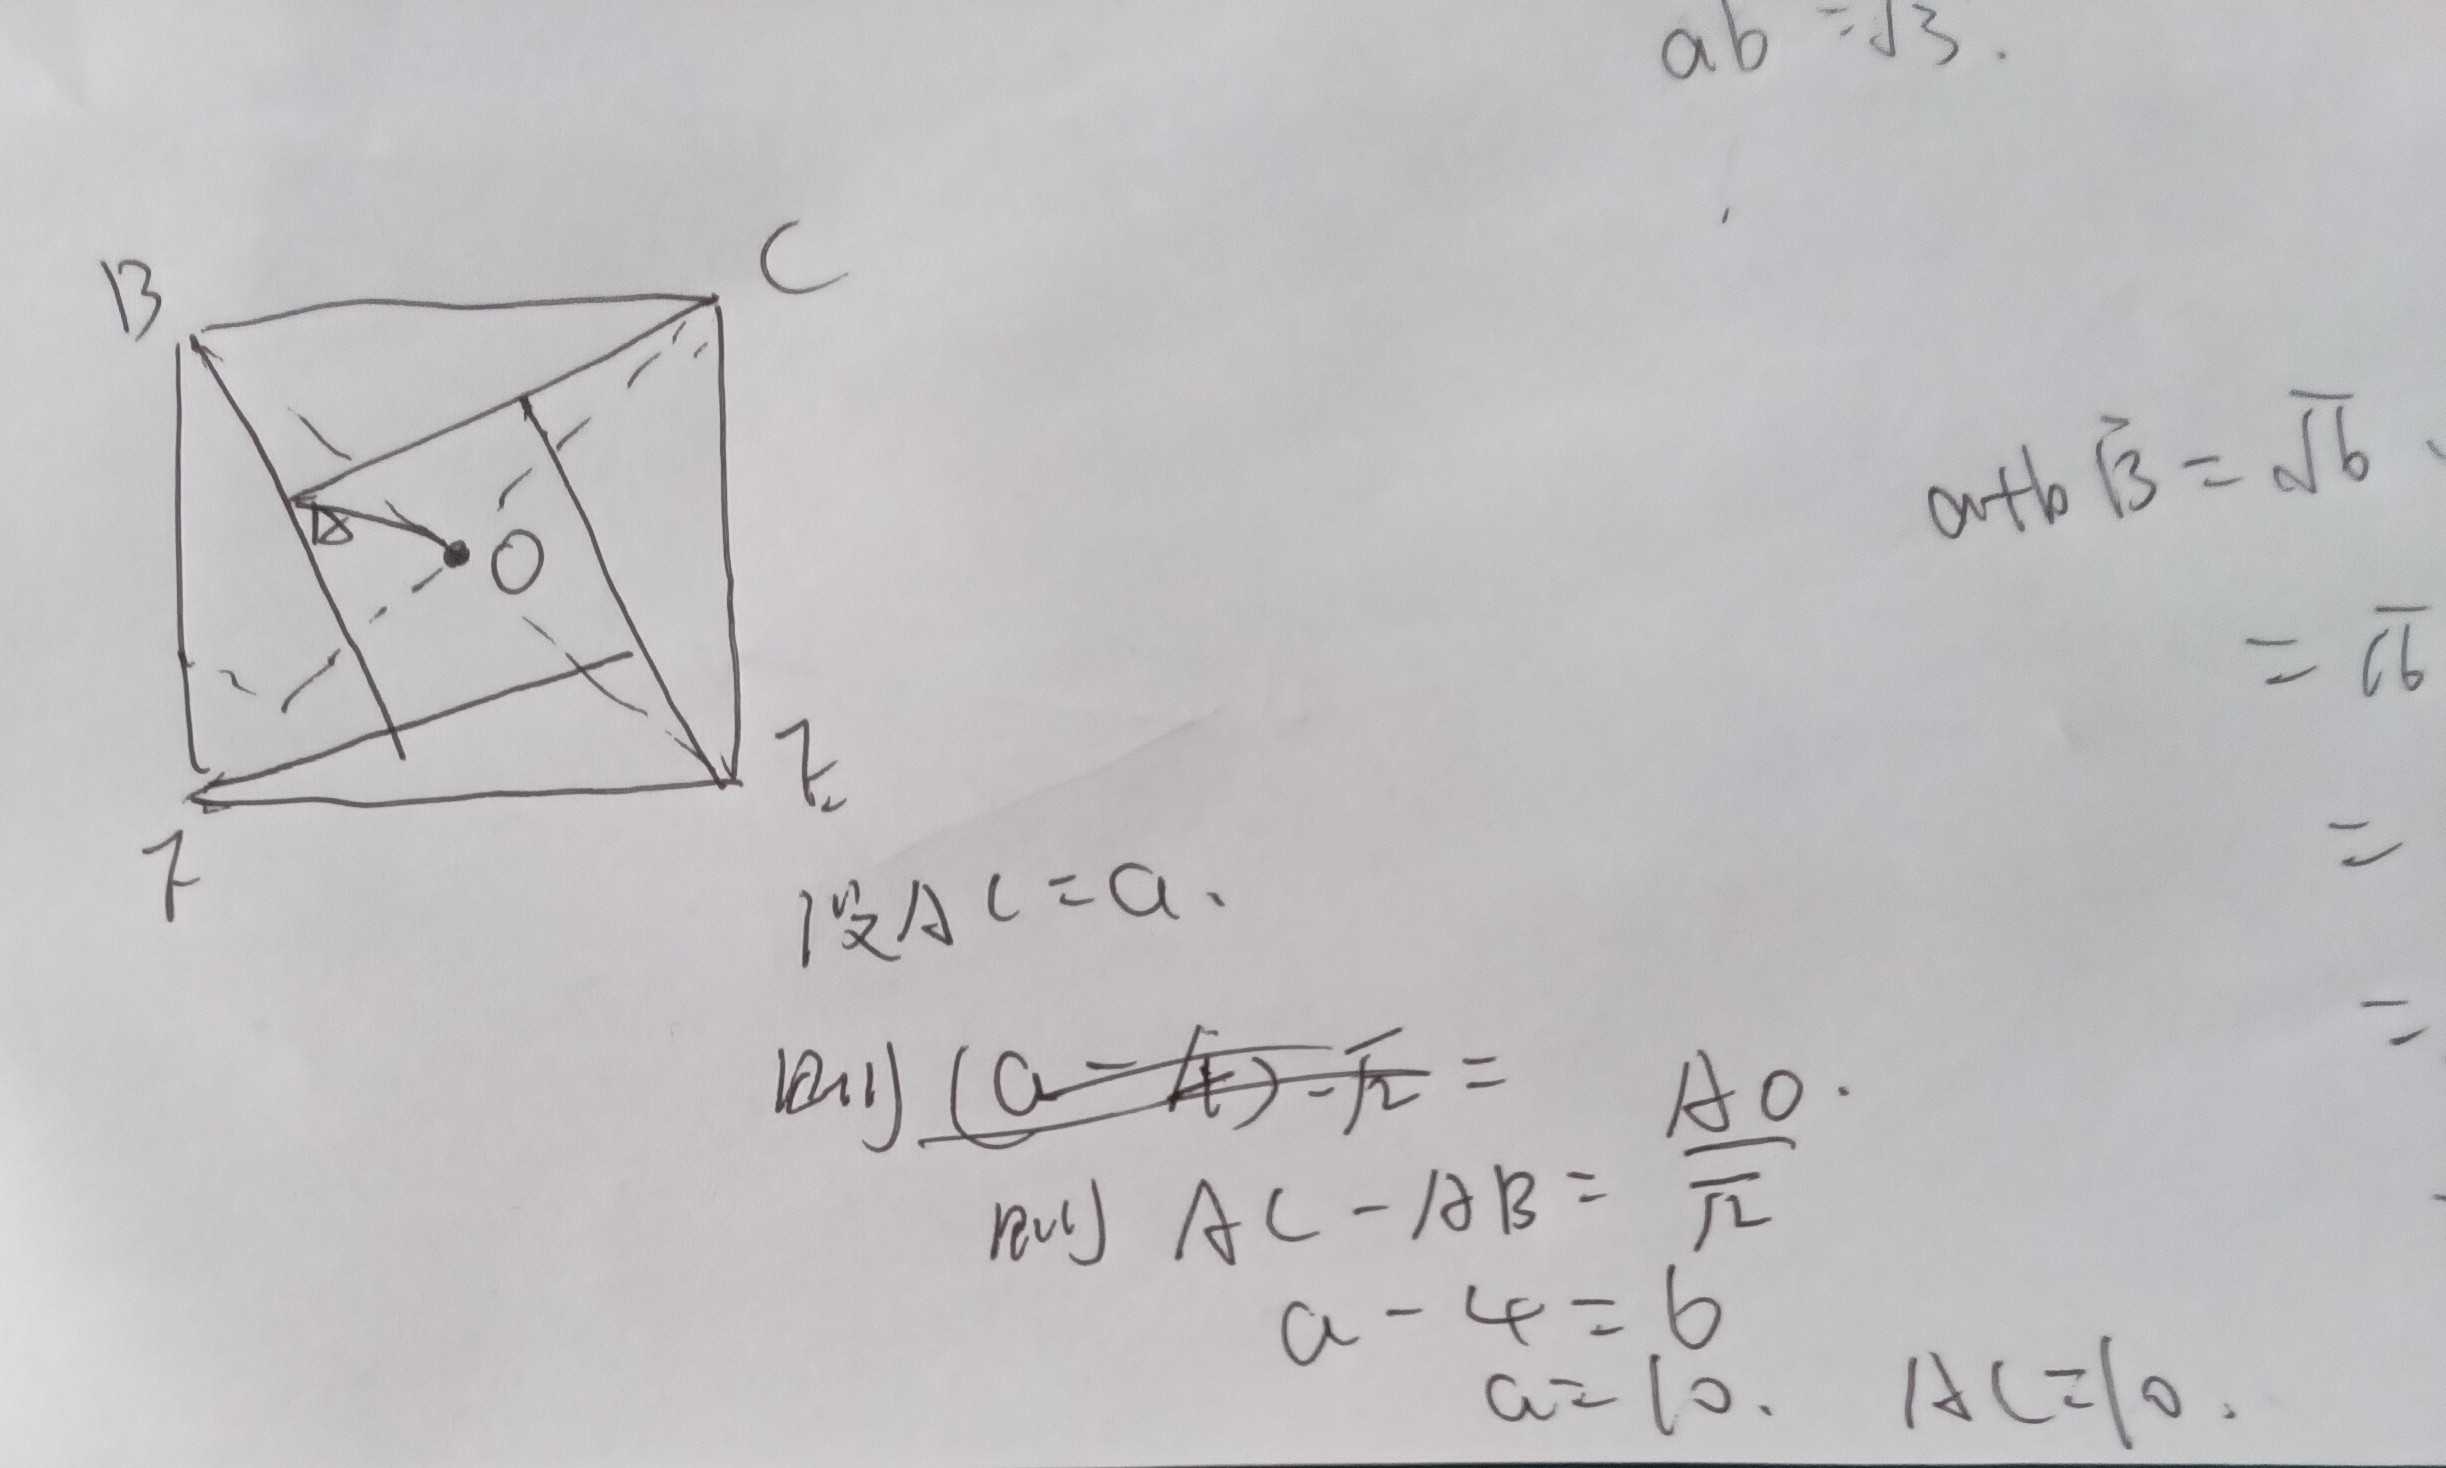 ab = √3.
B
C
A
O
E
F
a+b√3 = √6
= √6
=
=
设AC=a.
则 (a-4)-√2 =
则 AC-AB = AO/√2.
a-4=6
a=10. AC=10.